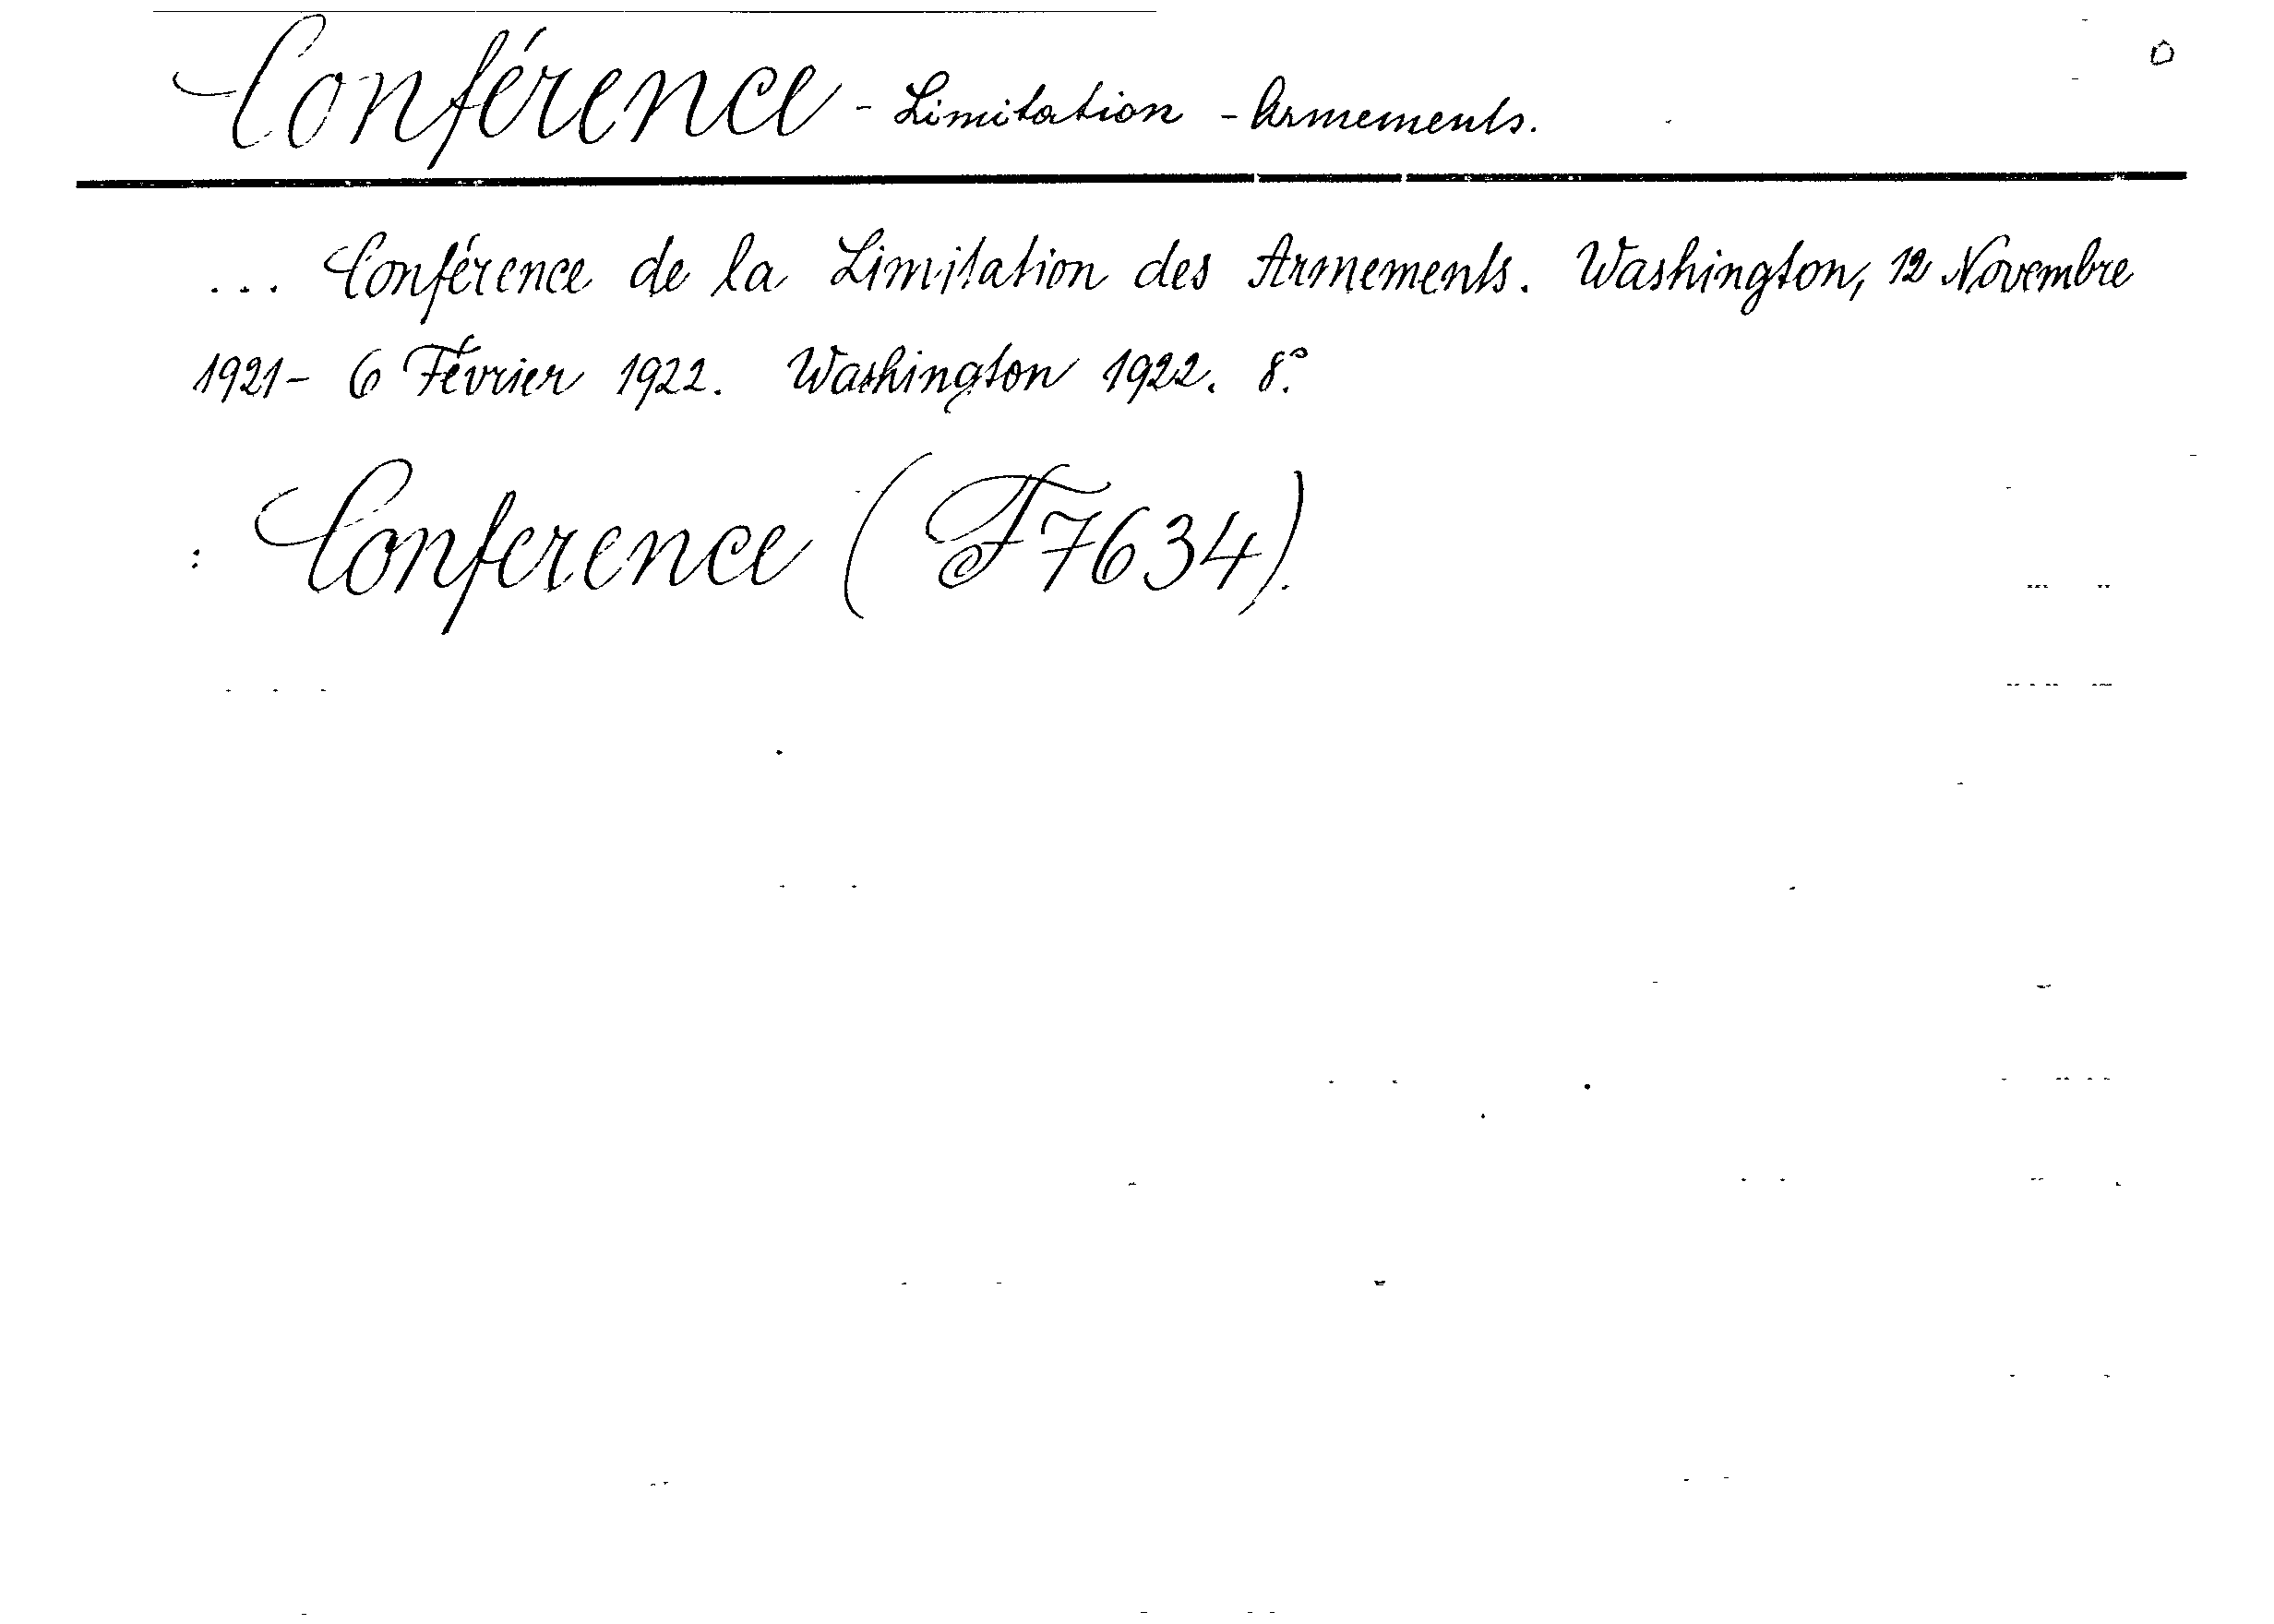 Conférence - Limitation - Armements.
... Conférence de la Limitation des Armements. Washington, 12 Novembre
1921 - 6 Février 1922. Washington 1922. 8°.
: Conference (F7634).